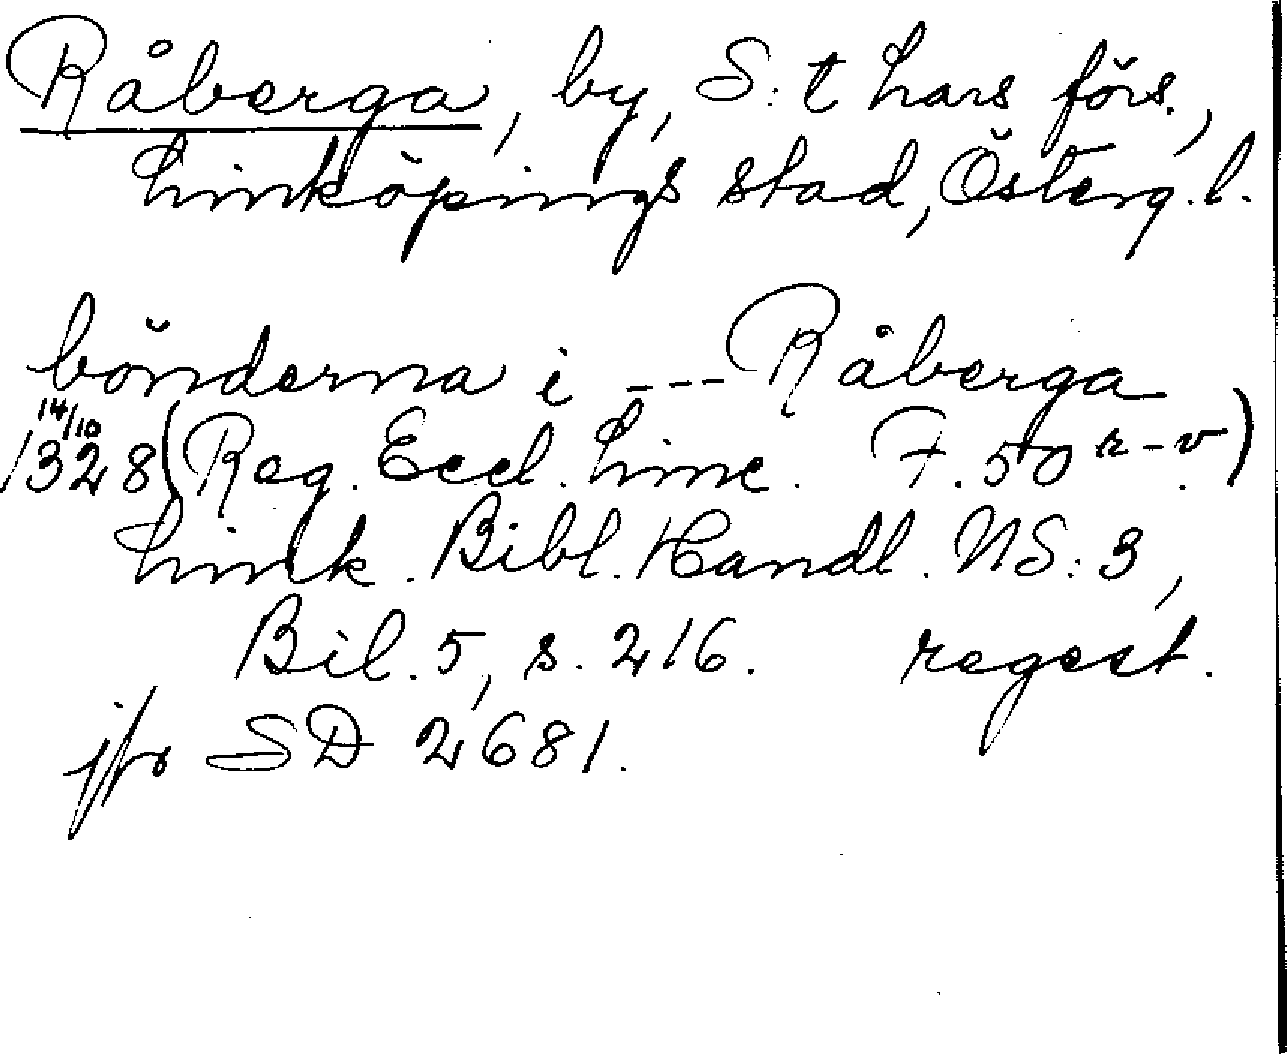 Råberga, by, S:t Lars förs.,
Linköpings stad, Österg.l.
bönderna i --- Råberga
14/10
1328 (Reg. Eccl. Linc. F. 50 r-v.)
Link. Bibl. Handl. NS: 3,
Bil. 5, s. 216. regest.
jfr SD 2681.